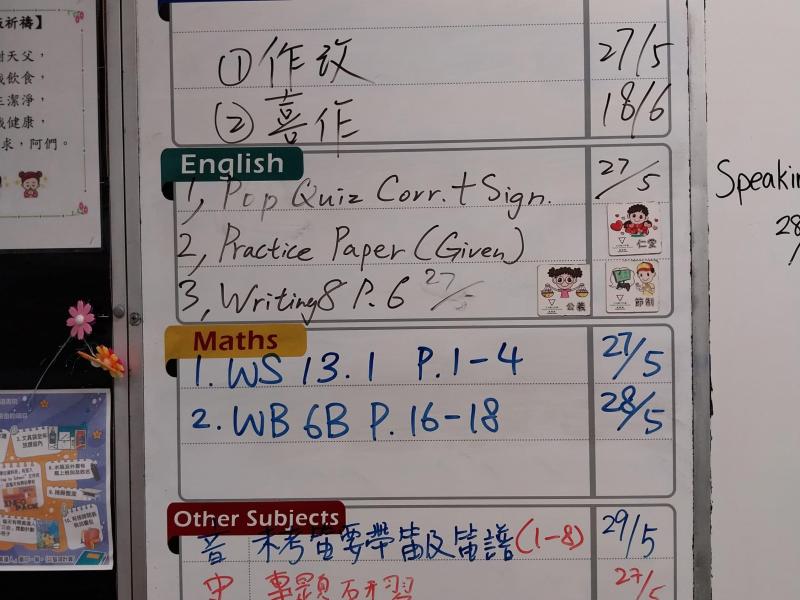 祈禱】
天父，
飲食，
潔淨，
健康，
求，阿們。
① 作改 27/5
② 喜作 18/6
English
1, Pop Quiz Corr. + Sign. 27/5
2, Practice Paper (Given)
仁愛
3, Writing8 P.6 27/5
公義
節制
Maths
1. WS 13.1 P.1-4 27/5
2. WB 6B P.16-18 28/5
Other Subjects
音 未考笛要帶笛及笛譜(1-8) 29/5
中 專題研習 27/5
Speakin
28